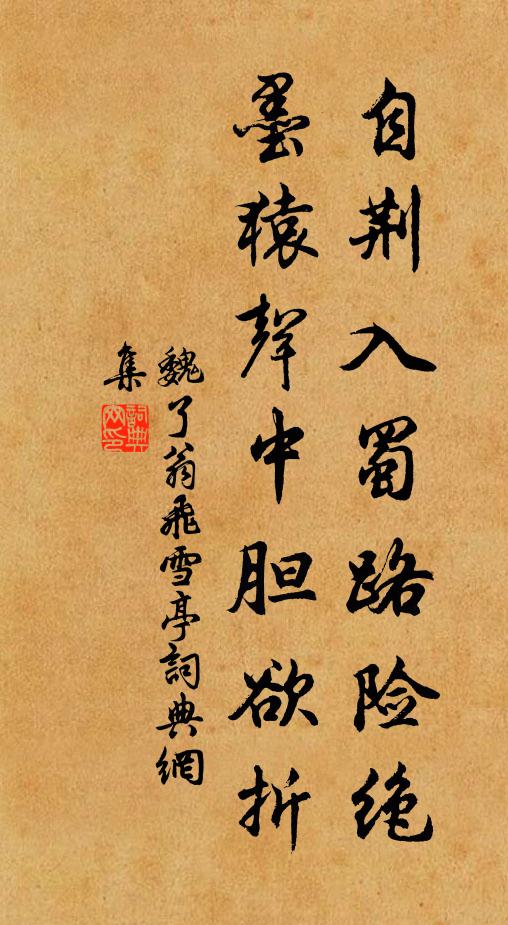 自荆入蜀路险绝
墨猿聲中胆欲折
魏了翁飛雪亭詞典網
集
詞典
网印